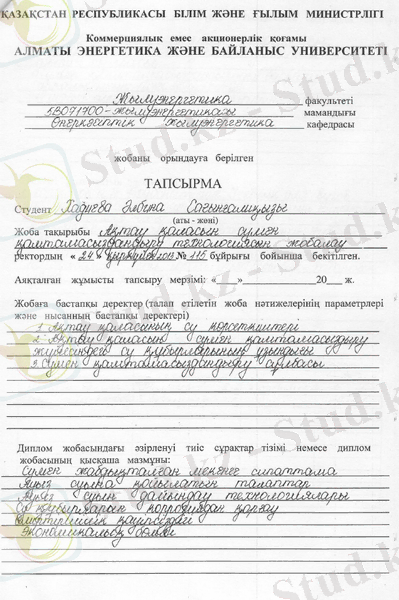 ҚАЗАҚСТАН РЕСПУБЛИКАСЫ БІЛІМ ЖӘНЕ ҒЫЛЫМ МИНИСТРЛІГІ
Коммерциялық емес акционерлік қоғамы
АЛМАТЫ ЭНЕРГЕТИКА ЖӘНЕ БАЙЛАНЫС УНИВЕРСИТЕТІ
Жылуэнергетика факультеті
5В071700-жылуэнергетикасы мамандығы
Өнеркәсіптік жылуэнергетика кафедрасы
жобаны орындауға берілген
ТАПСЫРМА
Студент Хадиева Элбина Сагынгалиқызы
(аты - жөні)
Жоба тақырыбы Ақтау қаласын сумен
қамтамасыздандыру технологиясын жобалау
ректордың « 24 » қыркүйек № 115 бұйрығы бойынша бекітілген.
Аяқталған жұмысты тапсыру мерзімі: «___»__________20___ ж.
Жобаға бастапқы деректер (талап етілетін жоба нәтижелерінің параметрлері
және нысанның бастапқы деректері)
1. Ақтау қаласының су көрсеткіштері
2. Ақтау қаласын сумен қамтамасыздыру
жүйесіндегі су құбырларының ұзындығы
3. Сумен қамтамасыздандыру сұлбасы
Диплом жобасындағы әзірленуі тиіс сұрақтар тізімі немесе диплом
жобасының қысқаша мазмұны:
Сумен жабдықталған мекенге сипаттама
Ауыз суына қойылатын талаптар
Ауыз суын дайындау технологиялары
Су құбырларын коррозиядан қорғау
Өміртіршілік қауіпсіздігі
Экономикалық бөлім
Stud.kz - Stud.kz